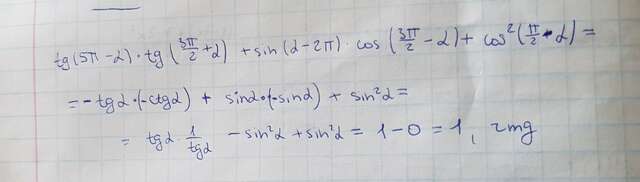 tg(5π-α)·tg(3π/2+α)+sin(α-2π)·cos(3π/2-α)+cos²(π/2-α)=
=-tgα·(-ctgα)+sinα·(-sinα)+sin²α=
=tgα·1/tgα-sin²α+sin²α=1-0=1,